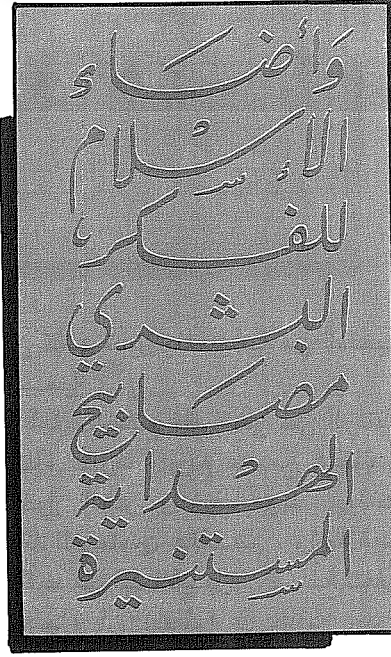 وَأضاء
الأسلام
للفكر
البشري
مصابيح
الهداية
المستنيرة